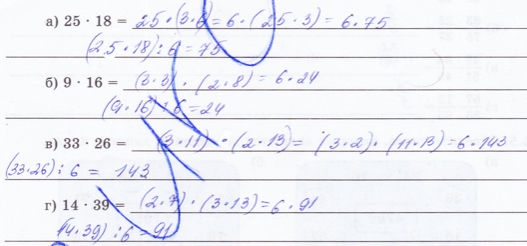 а) 25 · 18 = 25·(3·6) = 6·(25·3) = 6·75
(25·18):6 = 75
б) 9 · 16 = (3·3) · (2·8) = 6·24
(9·16):6 = 24
в) 33 · 26 = (3·11) · (2·13) = (3·2) · (11·13) = 6·143
(33·26):6 = 143
г) 14 · 39 = (2·7) · (3·13) = 6·91
(14·39):6 = 91